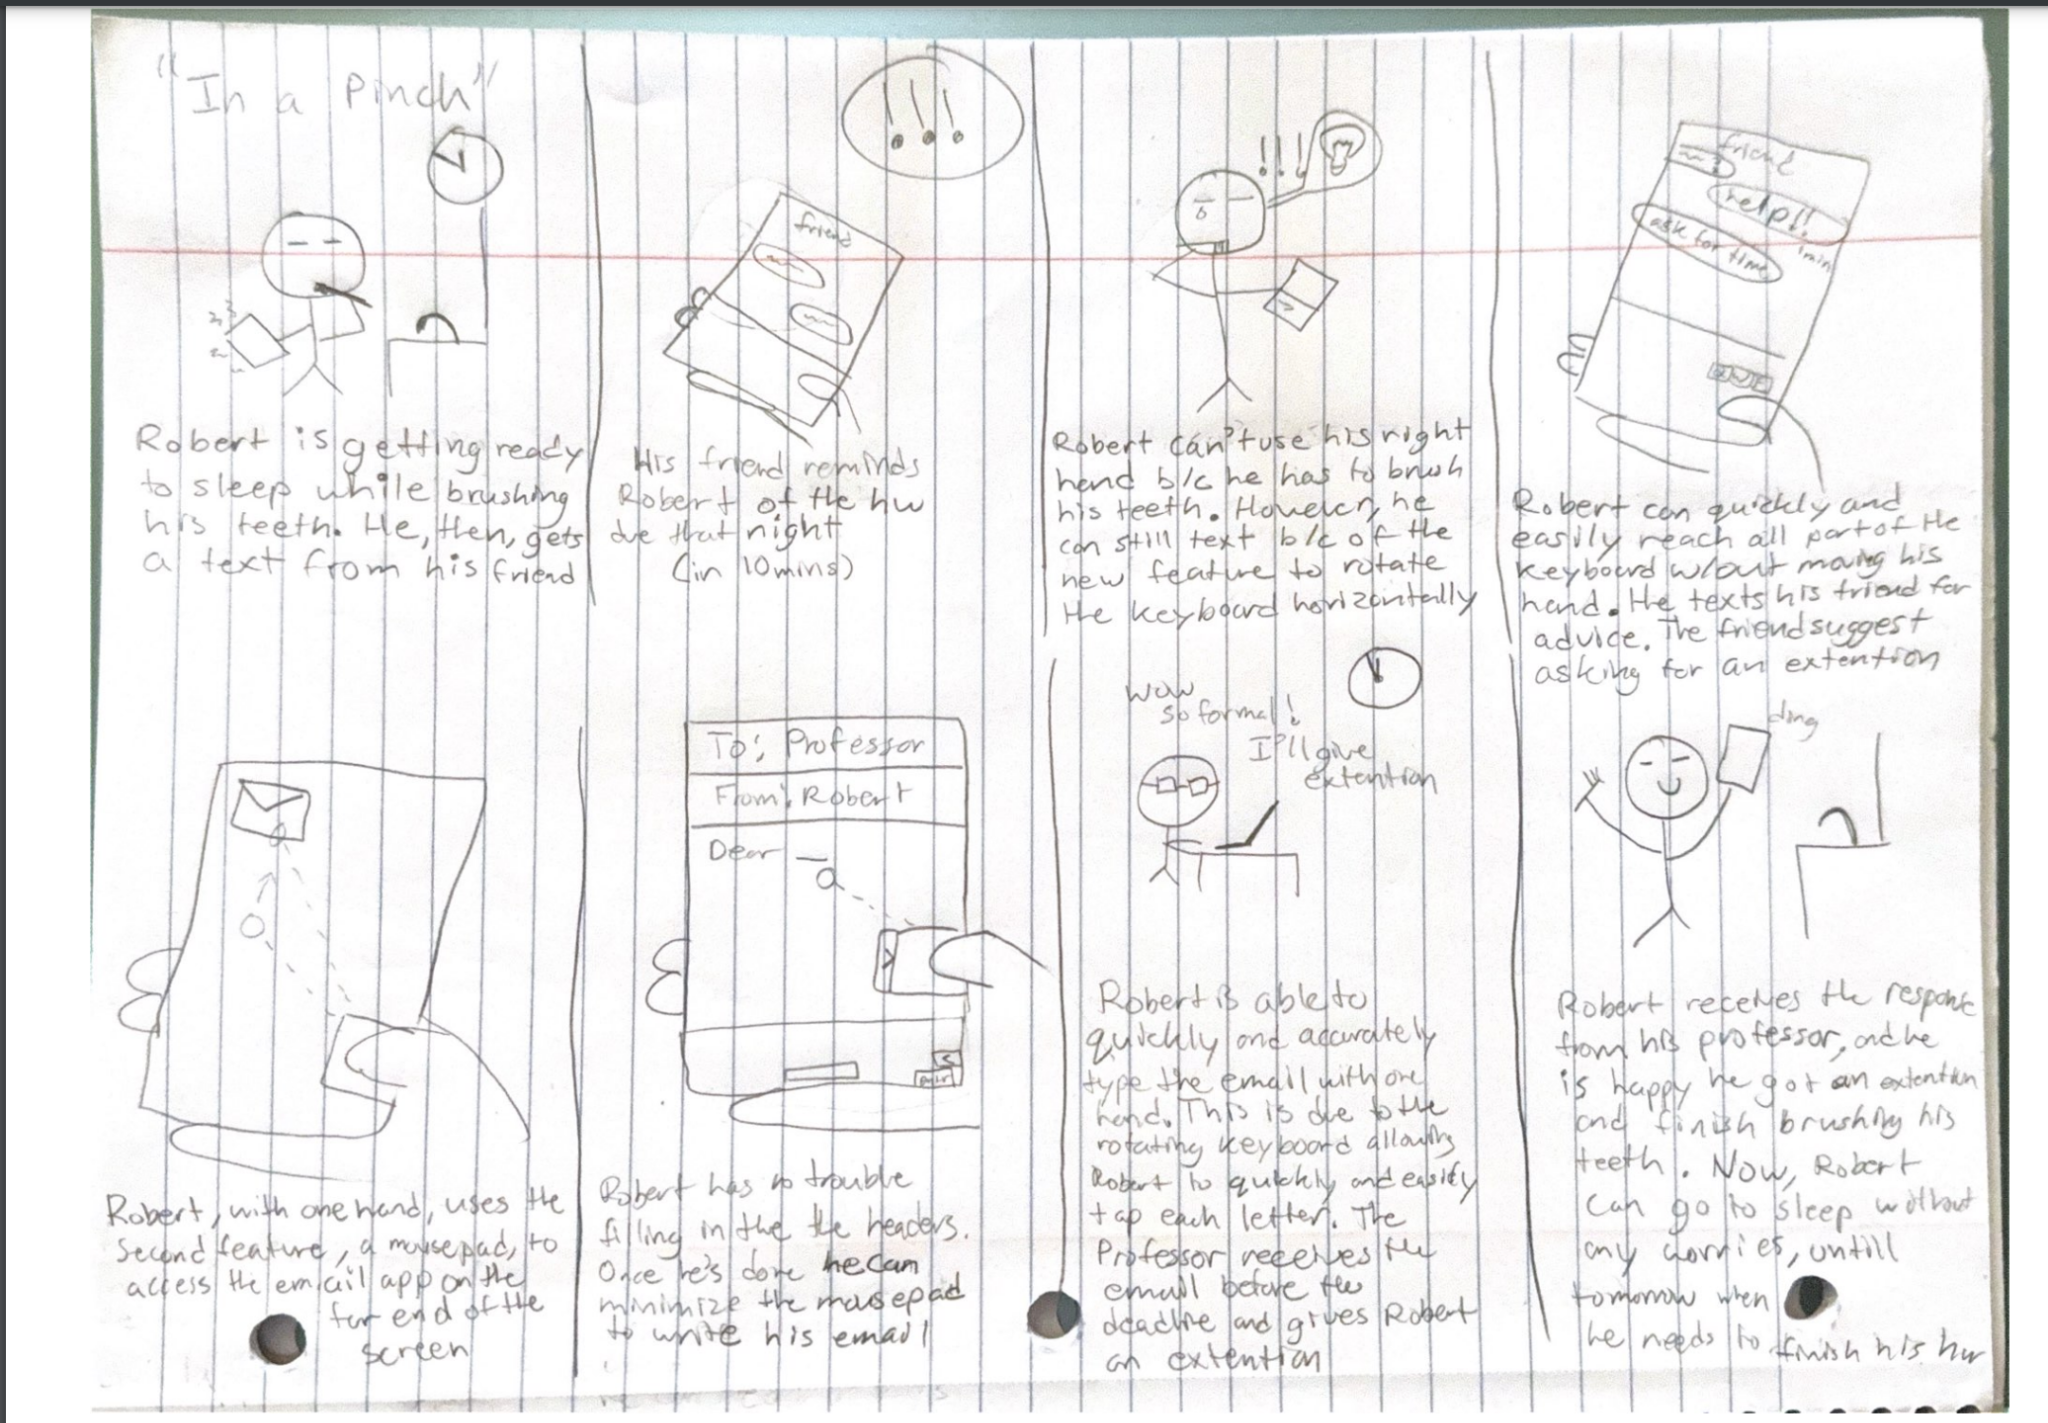 "In a Pinch"
Robert is getting ready
to sleep while brushing
his teeth. He, then, gets
a text from his friend
!!!
friend
His friend reminds
Robert of the hw
due that night
(in 10mins)
!!!
Robert can't use his right
hand b/c he has to brush
his teeth. However, he
can still text b/c of the
new feature to rotate
the keyboard horizontally
friend
help!!
1min
ask for time
Robert can quickly and
easily reach all part of the
keyboard w/out moving his
hand. He texts his friend for
advice. The friend suggest
asking for an extention
Robert, with one hand, uses the
second feature, a mousepad, to
access the email app on the
far end of the
screen
To: Professor
From: Robert
Dear
Robert has no trouble
filling in the the headers.
Once he's done he can
minimize the mousepad
to write his email
wow
so formal!
I'll give
extention
Robert is able to
quickly and accurately
type the email with one
hand. This is due to the
rotating keyboard allowing
Robert to quickly and easily
tap each letter. The
Professor receives the
email before the
deadline and gives Robert
an extention
ding
Robert receives the response
from his professor, and he
is happy he got an extention
and finish brushing his
teeth. Now, Robert
can go to sleep without
any worries, untill
tomorrow when
he needs to finish his hw